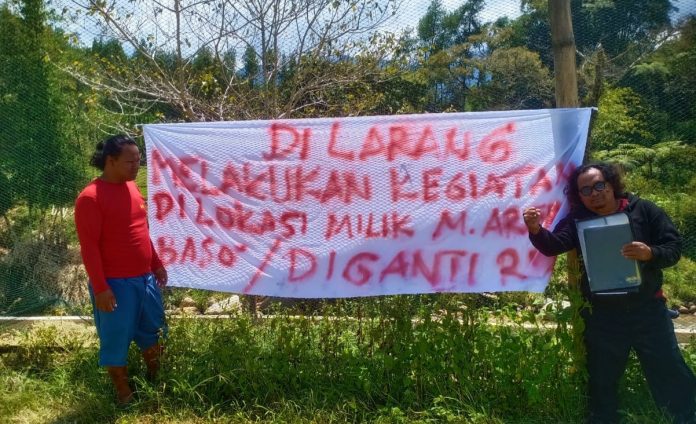 DI LARANG
MELAKUKAN KEGIATAN
DI LOKASI MILIK M.
BASO / DIGANTI